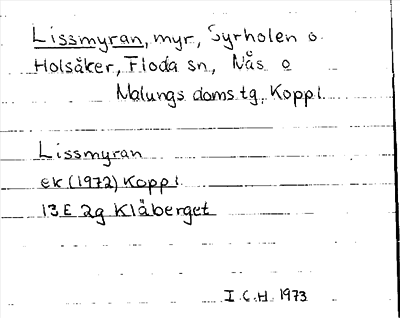 Lissmyran, myr, Syrholen o.
Holsåker, Floda sn, Nås o
Malungs doms tg, Koppl.
Lissmyran
ek (1972) Koppl
13 E 2g Klåberget
I.C.H. 1973